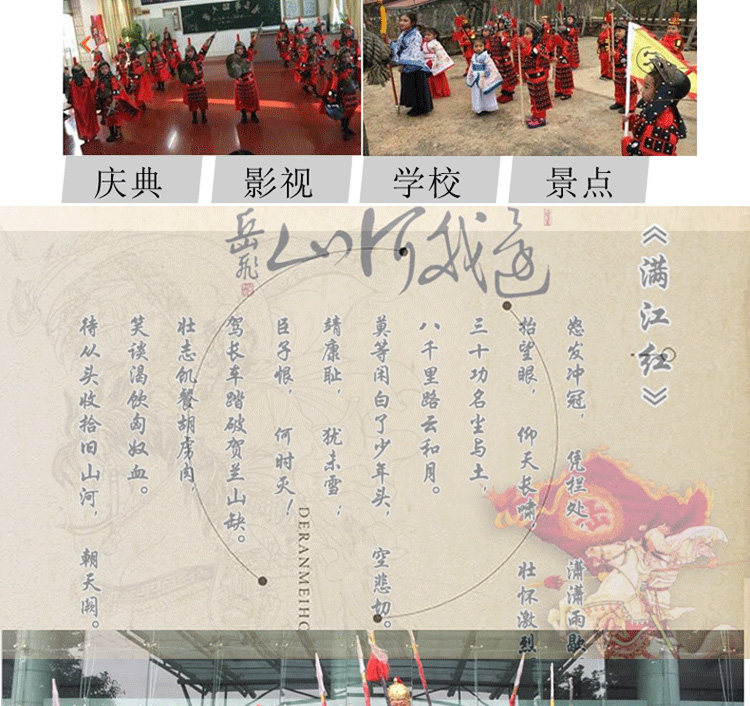 庆典
影视
学校
景点
還我河山
岳飛
《满江红》
怒发冲冠， 凭栏处， 潇潇雨歇
抬望眼， 仰天长啸， 壮怀激烈
三十功名尘与土，
八千里路云和月。
莫等闲白了少年头， 空悲切。
靖康耻， 犹未雪；
臣子恨， 何时灭！
驾长车踏破贺兰山缺。
壮志饥餐胡虏肉，
笑谈渴饮匈奴血。
待从头收拾旧山河， 朝天阙。
DERANMEIHO